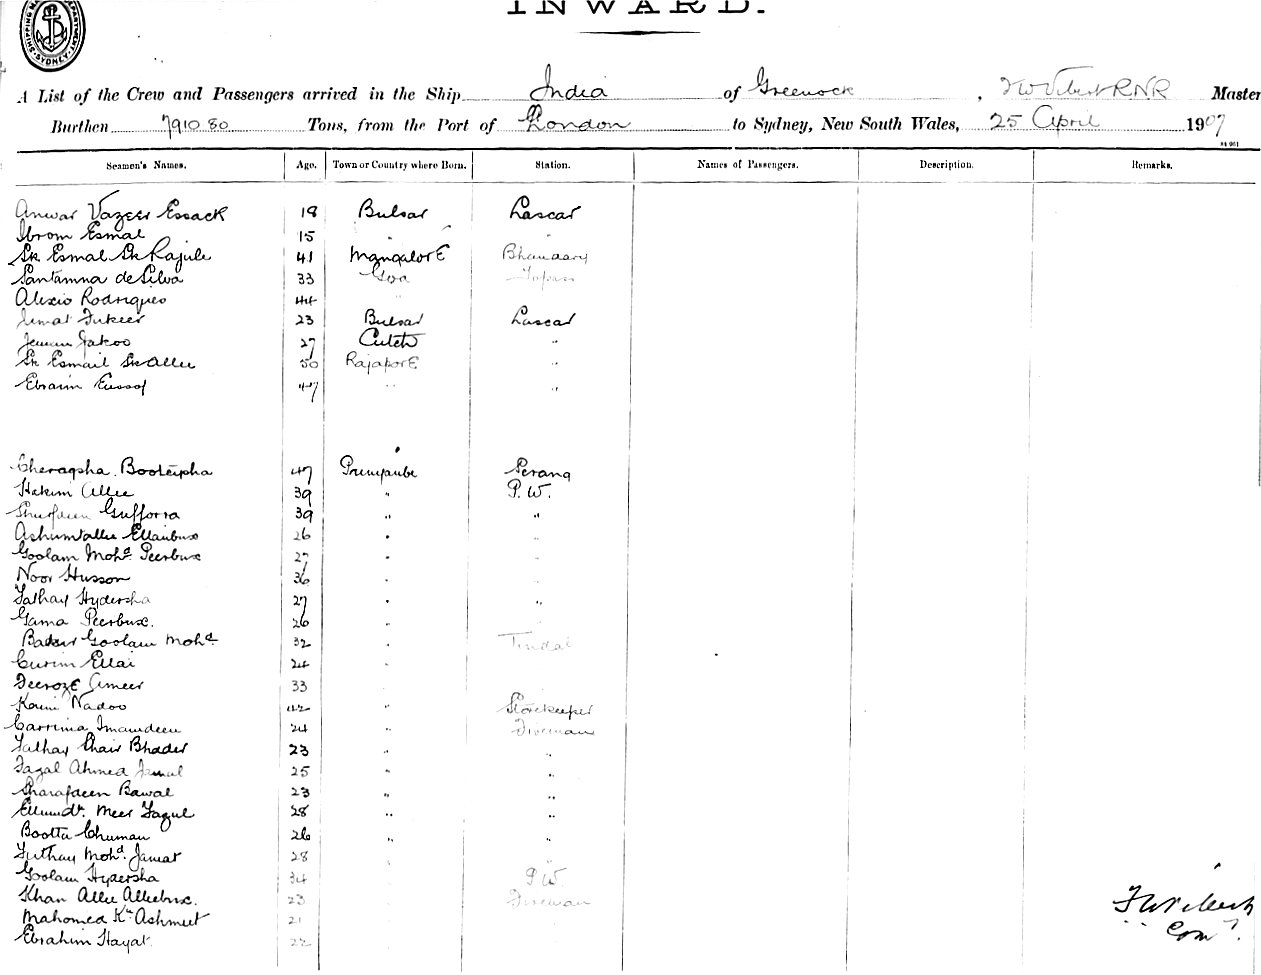 INWARD.
SHIPPING MA DEPARTMENT. SYDNEY
A List of the Crew and Passengers arrived in the Ship India of Greenock, RNR Master
Burthen 7910.80 Tons, from the Port of London to Sydney, New South Wales, 25 April 1907
Seamen's Names. Age. Town or Country where Born. Station. Names of Passengers. Description. Remarks.
Anwar Vazeer Essack 18 Bulsar Lascar
Ibrom Esmal 15 "
Sk Esmal Sk Rajule 41 Mangalore Bhandary
Santamna de Silva 33 Goa Topass
Alexio Rodrigues 44 "
Jemat Fukeer 23 Bulsar Lascar
Jakoo 27 Cutch "
Sk Esmail Sk Allee 50 Rajapore "
Ebraim Eussof 47 " "
Cheragsha Booteipha 47 Punjaube Serang
Hakim Allee 39 " P.W.
Shurfdeen Gufforra 39 " "
Ashumtallie Ellaibux 26 " "
Goolam Mohd. Peerbux 27 " "
Noor Husson 36 " "
Fathay Hydersha 27 " "
Gama Peerbux. 26 " "
Goolam Mohd. 32 " Tindal
Curim Ellai 24 "
Feeroze Ameer 33 "
Nadoo 42 " Storekeeper
Carrima Imamdeen 24 " Fireman
Fathay Bhader 23 " "
Fazal Ahmed Jamal 25 " "
Sharafdeen Bawal 23 " "
Meer Fazul 28 " "
Boota Chuman 26 " "
Futhay Mohd. Jamat 28 "
Goolam Hydersha 34 P.W.
Khan Allie Alliebux. 23 Fireman
Mahomed Kn Ashmut 21
Ebrahim Hayat. 22
Comr.